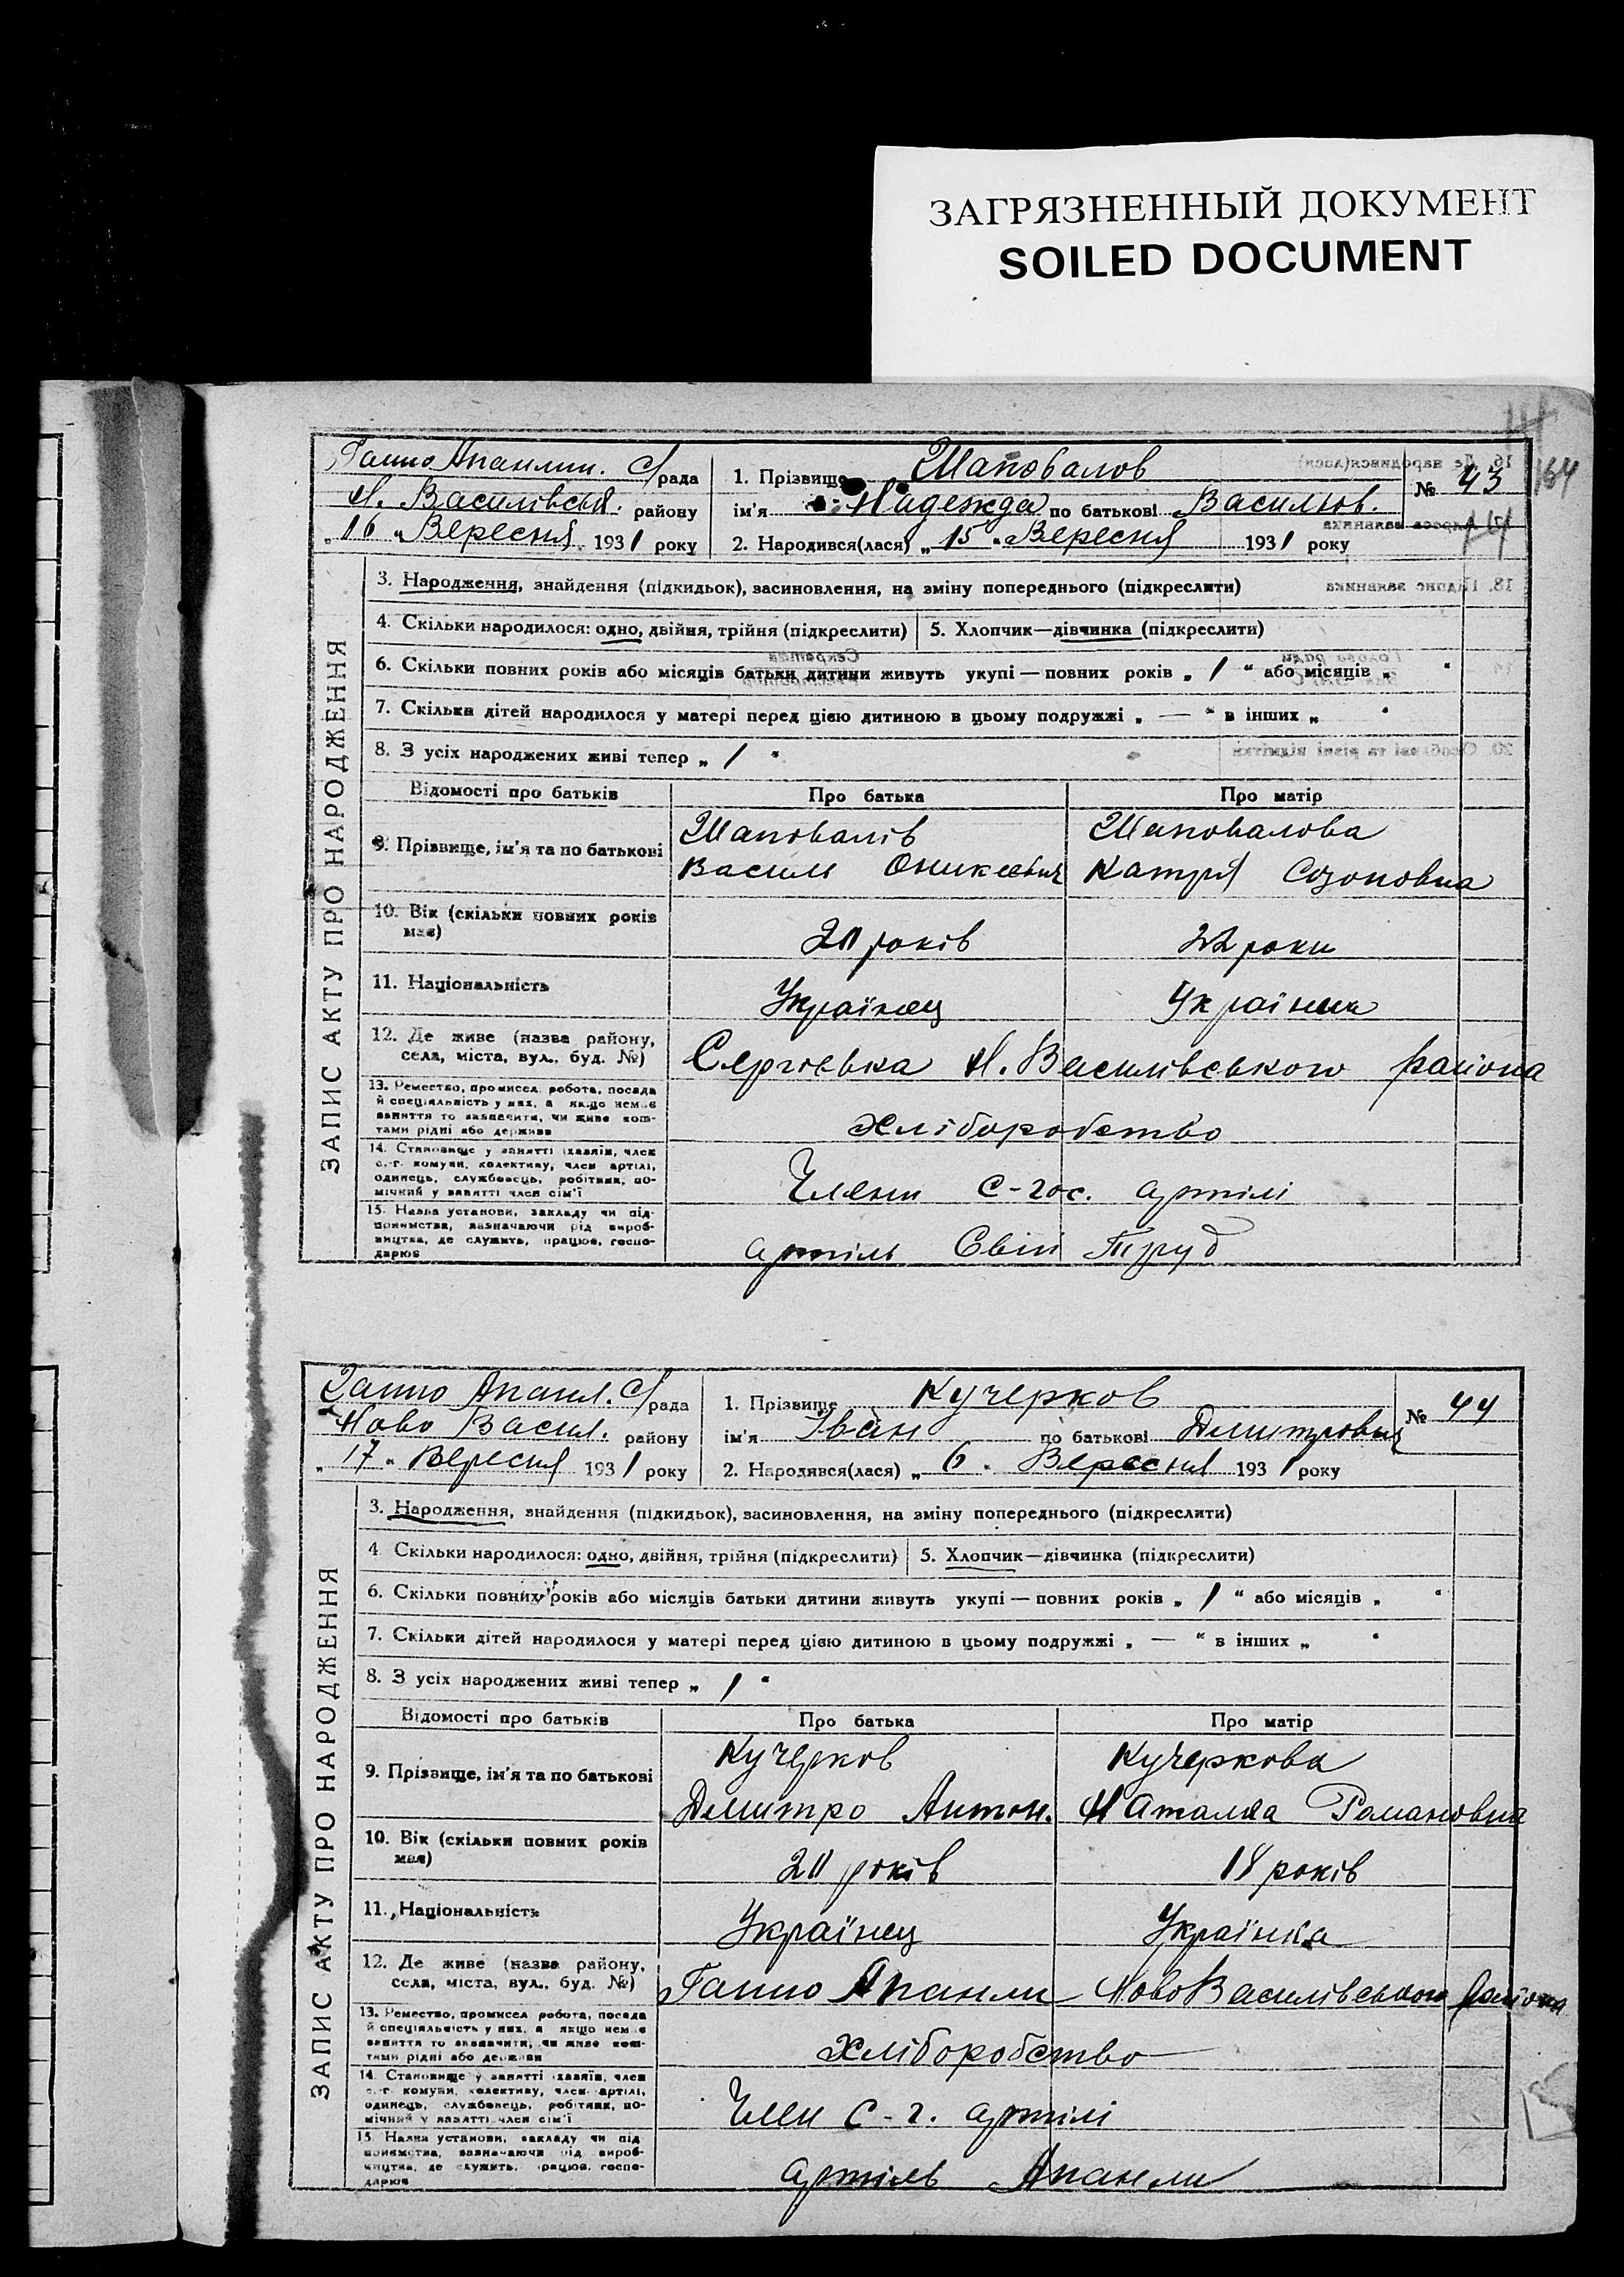 ЗАГРЯЗНЕННЫЙ ДОКУМЕНТ
SOILED DOCUMENT
164
Ганно Апанлин. С/рада
Н. Василівськ. району
„16“ Вересня 1931 року
1. Прізвище Шаповалов
ім'я Надежда по батькові Васильов.
2. Народився(лася) „15“ Вересня 1931 року
№ 43
44
ЗАПИС АКТУ ПРО НАРОДЖЕННЯ
3. Народження, знайдення (підкидьок), засиновлення, на зміну попереднього (підкреслити)
4. Скільки народилося: одно, двійня, трійня (підкреслити) 5. Хлопчик—дівчинка (підкреслити)
6. Скільки повних років або місяців батьки дитини живуть укупі — повних років „ 1 “ або місяців „ “
7. Скільки дітей народилося у матері перед цією дитиною в цьому подружжі „ — “ в інших „ “
8. З усіх народжених живі тепер „ 1 “
Відомості про батьків Про батька Про матір
9. Прізвище, ім'я та по батькові
Шаповалів Шаповалова
Василь Оникеевич Катря Созоновна
10. Вік (скільки повних років має)
20 років 22 роки
11. Національність
Українец Українка
12. Де живе (назва району,
села, міста, вул., буд. №)
Сергієвка Н. Василівського района
13. Ремество, промисел, робота, посада
й спеціяльність у них, а якщо немає
заняття то зазначити, чи живе кош-
тами рідні або держави
Хліборобство
14. Становище у занятті (хазяїн, член
с.-г. комуни, колективу, член артілі,
одинець, службовець, робітник, по-
мічний у занятті член сім'ї
Члени с-гос. артілі
15. Назва установи, закладу чи під-
приємства, зазначаючи рід вироб-
ництва, де служить, працює, госпо-
дарює
артіль Свій Труд
Ганно Апанл. С/рада
Ново Васил. району
„17“ Вересня 1931 року
1. Прізвище Кучерков
ім'я Іван по батькові Дмитрович
2. Народився(лася) „6“ Вересня 1931 року
№ 44
ЗАПИС АКТУ ПРО НАРОДЖЕННЯ
3. Народження, знайдення (підкидьок), засиновлення, на зміну попереднього (підкреслити)
4 Скільки народилося: одно, двійня, трійня (підкреслити) 5. Хлопчик—дівчинка (підкреслити)
6. Скільки повних років або місяців батьки дитини живуть укупі — повних років „ 1 “ або місяців „ “
7. Скільки дітей народилося у матері перед цією дитиною в цьому подружжі „ — “ в інших „ “
8. З усіх народжених живі тепер „ 1 “
Відомості про батьків Про батька Про матір
9. Прізвище, ім'я та по батькові
Кучерков Кучеркова
Дмитро Антон. Наталка Романовна
10. Вік (скільки повних років
має)
20 років 18 років
11. Національність
Українец Українка
12. Де живе (назва району,
села, міста, вул., буд. №)
Ганно Апанли НовоВасилівського района
13. Ремество, промисел робота, посада
й спеціяльність у них, а якщо немає
заняття то зазначити, чи живе кош-
тами рідні або держави
Хліборобство
14. Становище у занятті (хазяїн, член
с.-г. комуни, колективу, член артілі,
одинець, службовець, робітник, по-
мічний у занятті член сім'ї
Член с-г. артілі
15. Назва установи, закладу чи під-
приємства, зазначаючи рід вироб-
ництва, де служить, працює, госпо-
дарює
артіль Апанли